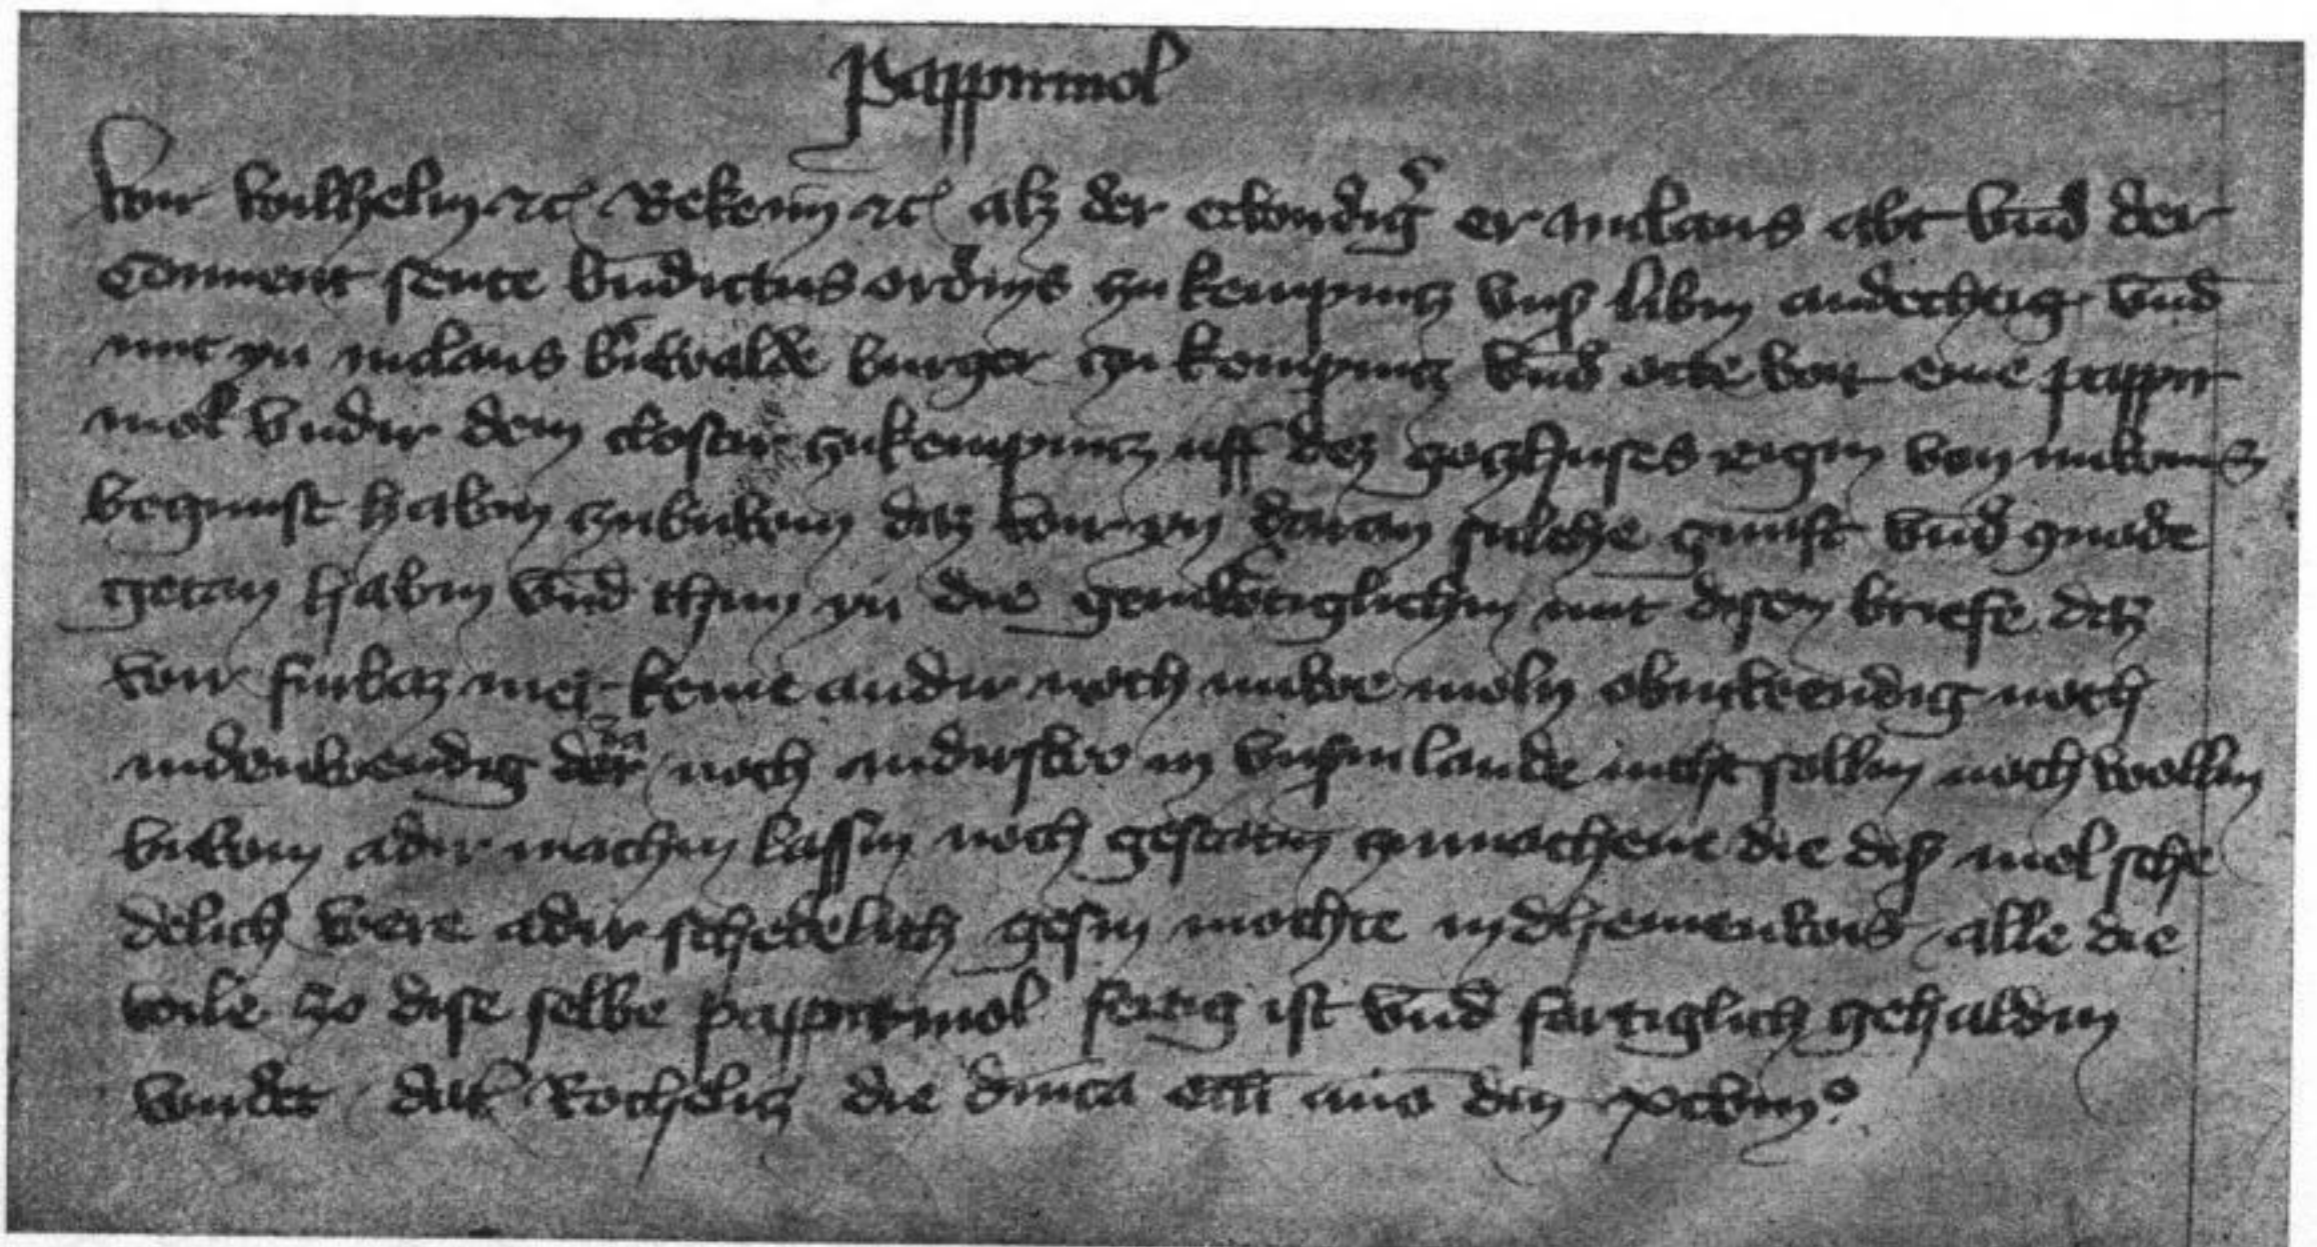 Pappirmol
Wir Wilhelm etc Bekenn etc alz der erwirdig er niclaus abt vnd der
Conuent sente bndictus ordins zu kempnicz vnß libin andechtig vnd
mit yn niclaus bwalde burger czu kempnicz vnd otte von eine pappir
mol vndir dem closter zu kempnicz uff dez goczhuses eigin von nuwens
begunst habin zubuwin daz wir yn daran sulche gunst vnd gnade
getan habin vnd thun yn die geinwertiglichin mit disem briefe daz
wir furbaz mer keine andir noch nuwe moln obinwendig noch
nidenwendig der noch andirswo in vnßin lande nicht sollin noch wollin
buwin adir machin lassin noch gestatin zumachene die diß mol sche
delich were adir schedelich gesin mochte in dheinenwis alle die
wile zo dise selbe pappirmol fertig ist vnd fertiglich gehaldin
wirdet dat Rochelicz die dinca ann din